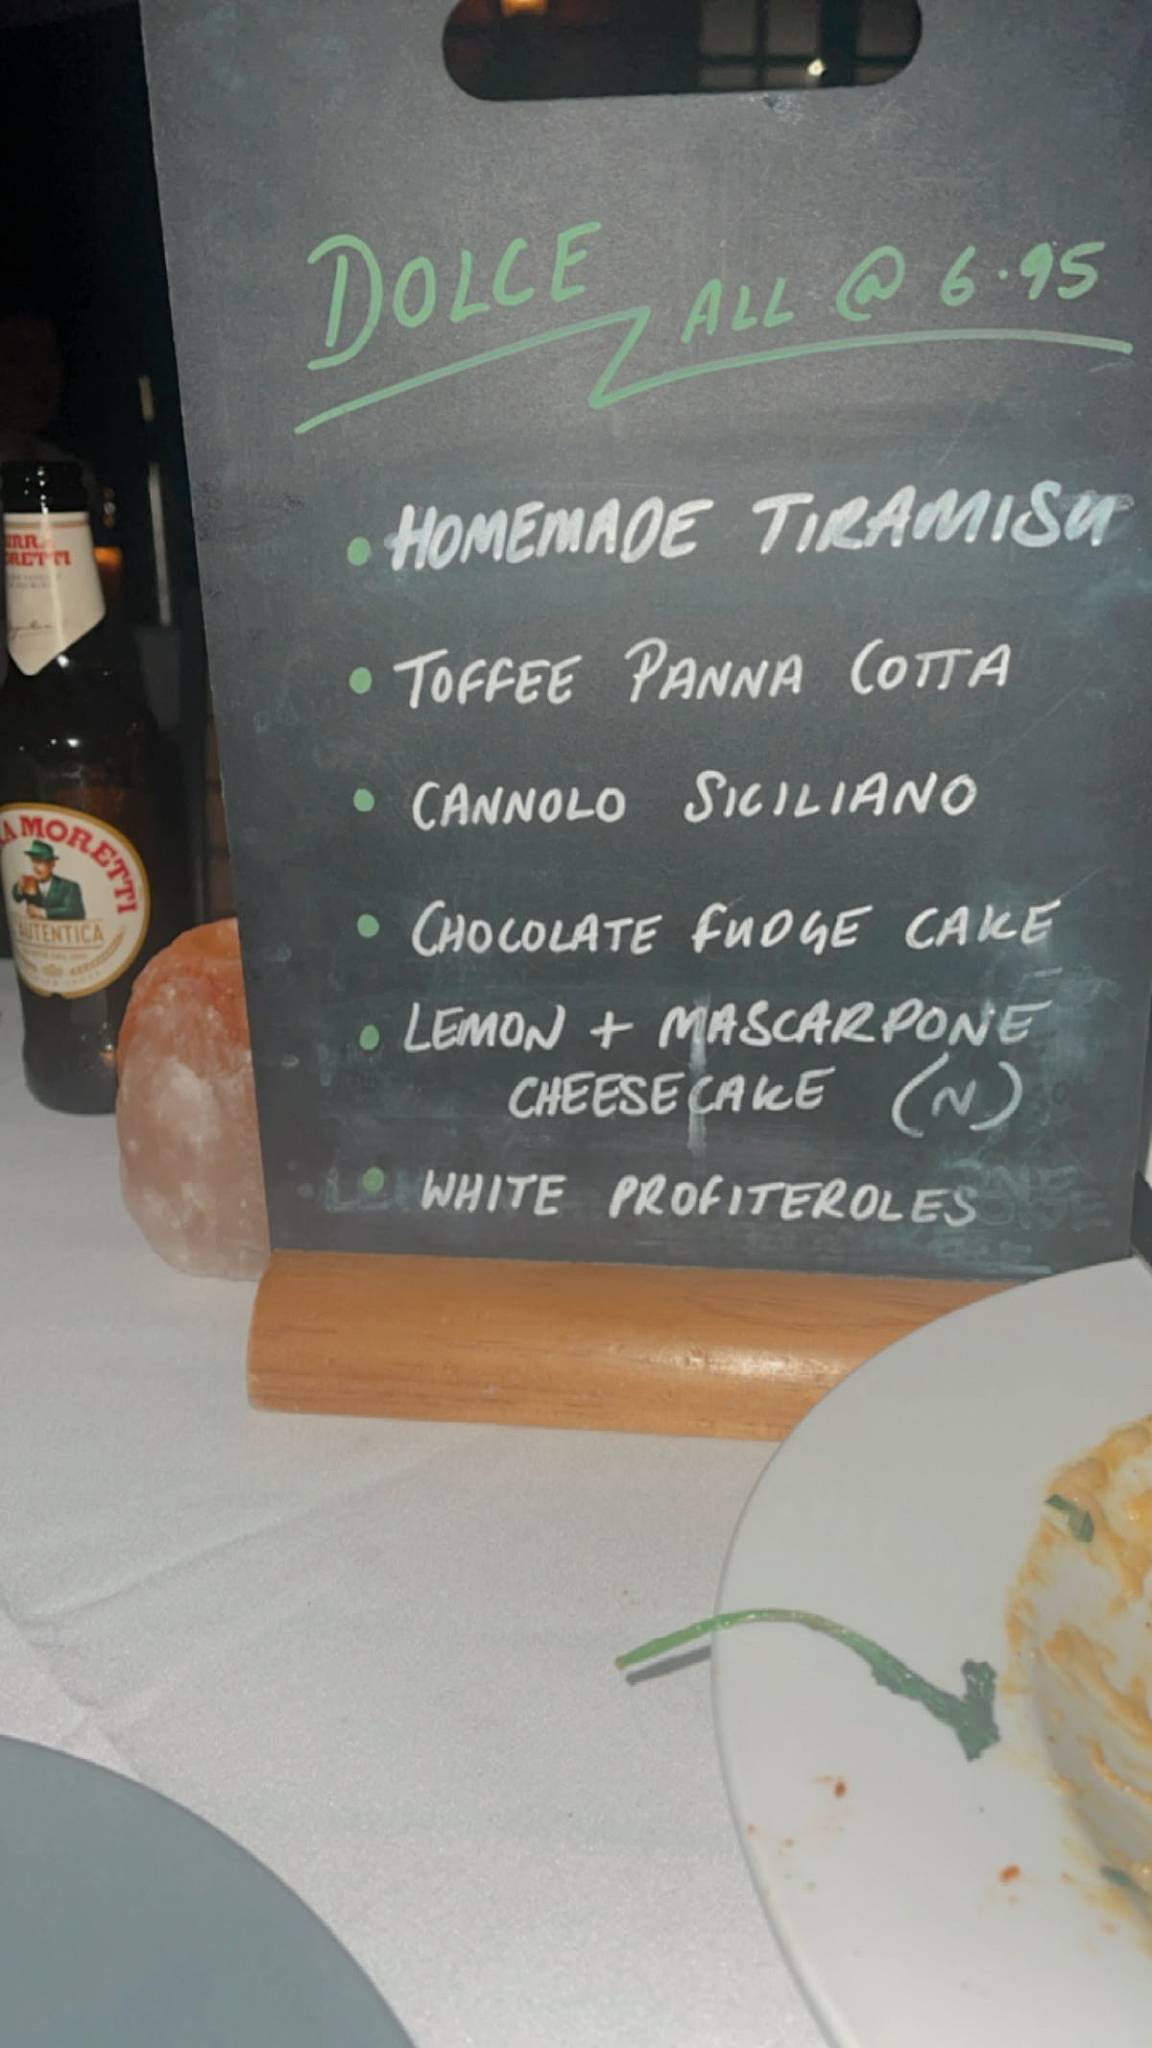 DOLCE ALL @ 6.95
• HOMEMADE TIRAMISU
• TOFFEE PANNA COTTA
• CANNOLO SICILIANO
• CHOCOLATE FUDGE CAKE
• LEMON + MASCARPONE
CHEESECAKE (N)
• WHITE PROFITEROLES
MORETTI
AUTENTICA